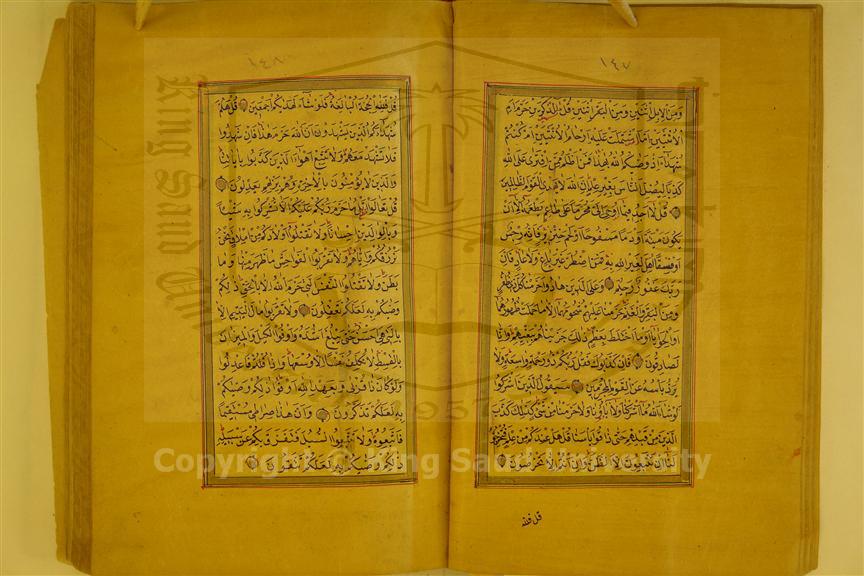 ١٤٧
ومن الابل اثنين ومن البقر اثنين قل آلذكرين حرم ام
الانثيين اما اشتملت عليه ارحام الانثيين ام كنتم
شهداء اذ وصيكم الله بهذا فمن اظلم ممن افترى على الله
كذبا ليضل الناس بغير علم ان الله لا يهدي القوم الظالمين
قل لا اجد فيما اوحي الي محرما على طاعم يطعمه الا ان
يكون ميتة او دما مسفوحا او لحم خنزير فانه رجس
او فسقا اهل لغير الله به فمن اضطر غير باغ ولا عاد فان
ربك غفور رحيم وعلى الذين هادوا حرمنا كل ذي ظفر
ومن البقر والغنم حرمنا عليهم شحومهما الا ما حملت ظهورهما
او الحوايا او ما اختلط بعظم ذلك جزيناهم ببغيهم وانا
لصادقون فان كذبوك فقل ربكم ذو رحمة واسعة ولا
يرد باسه عن القوم المجرمين سيقول الذين اشركوا
لو شاء الله ما اشركنا ولا آباؤنا ولا حرمنا من شيء كذلك كذب
الذين من قبلهم حتى ذاقوا باسنا قل هل عندكم من علم فتخرجوه
لنا ان تتبعون الا الظن وان انتم الا تخرصون
قل فلله
١٤٨
قل فلله الحجة البالغة فلو شاء لهديكم اجمعين قل هلم
شهداءكم الذين يشهدون ان الله حرم هذا فان شهدوا
فلا تشهد معهم ولا تتبع اهواء الذين كذبوا باياتنا
والذين لا يؤمنون بالآخرة وهم بربهم يعدلون
قل تعالوا اتل ما حرم ربكم عليكم الا تشركوا به شيئا
وبالوالدين احسانا ولا تقتلوا اولادكم من املاق نحن
نرزقكم واياهم ولا تقربوا الفواحش ما ظهر منها وما
بطن ولا تقتلوا النفس التي حرم الله الا بالحق ذلكم
وصيكم به لعلكم تعقلون ولا تقربوا مال اليتيم الا
بالتي هي احسن حتى يبلغ اشده واوفوا الكيل والميزان
بالقسط لا نكلف نفسا الا وسعها واذا قلتم فاعدلوا
ولو كان ذا قربى وبعهد الله اوفوا ذلكم وصيكم
به لعلكم تذكرون وان هذا صراطي مستقيما
فاتبعوه ولا تتبعوا السبل فتفرق بكم عن سبيله
ذلكم وصيكم به لعلكم تتقون
King Saud University
1957
Copyright © King Saud University